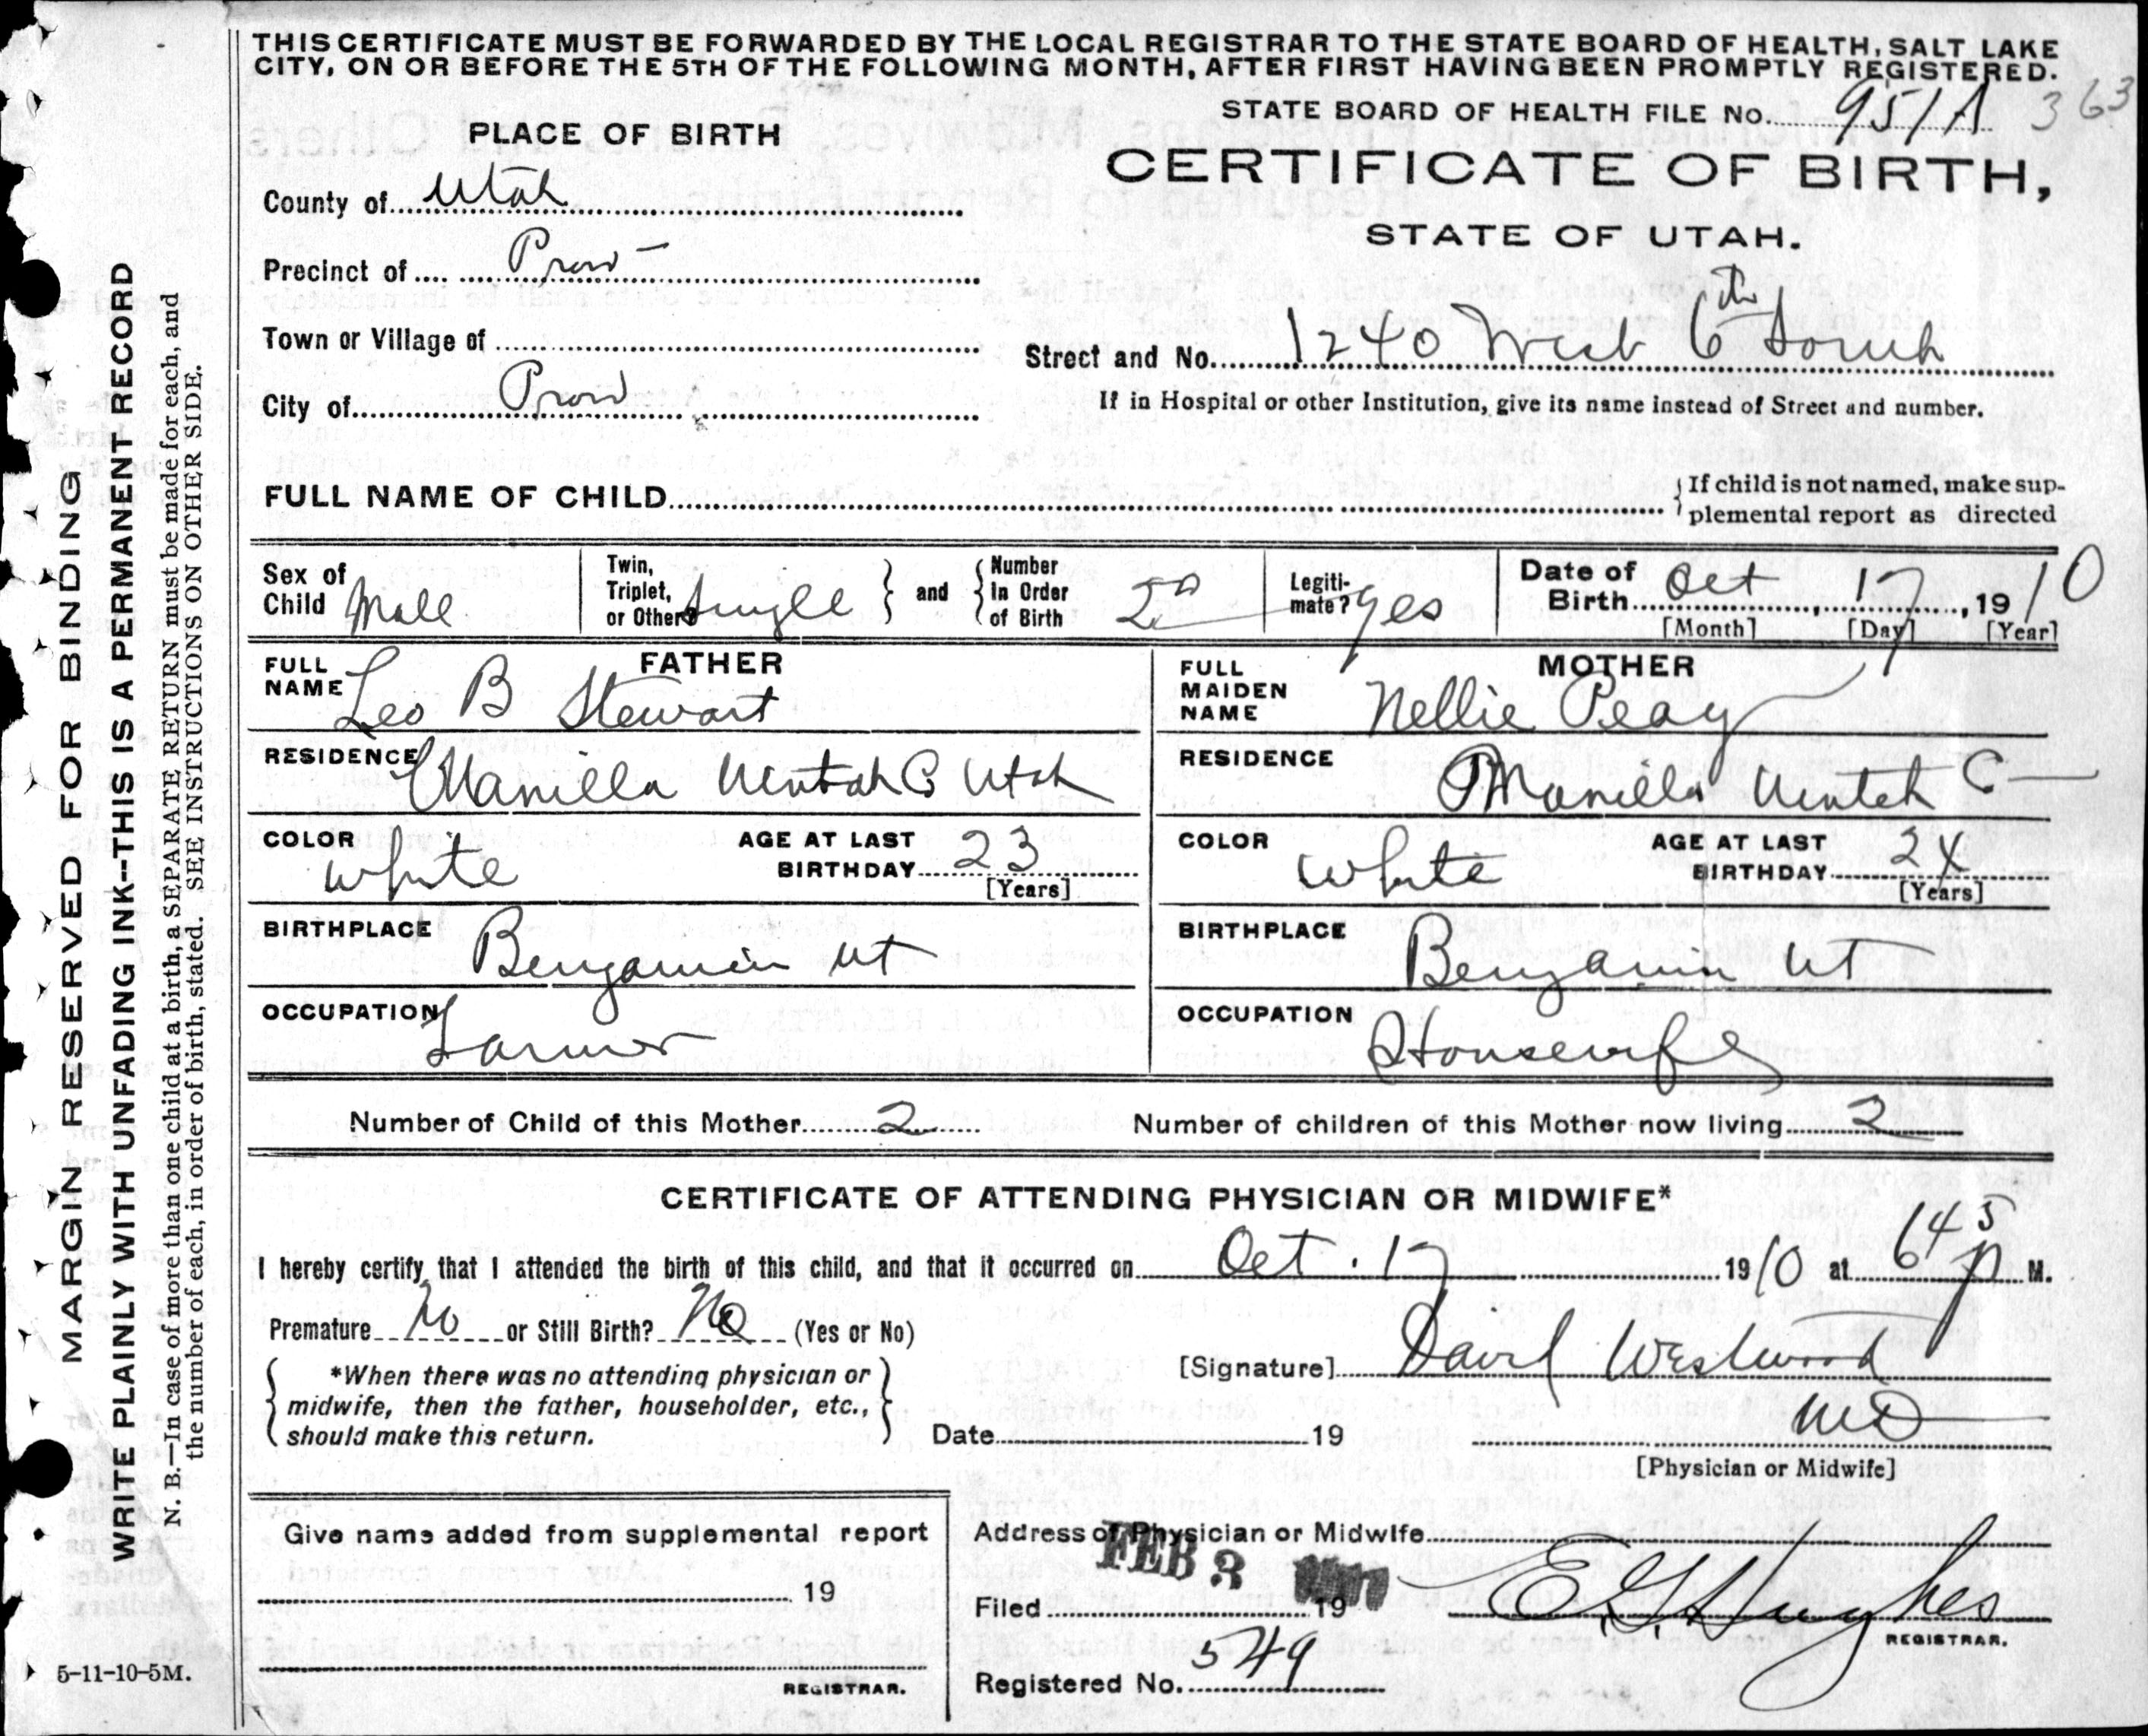 THIS CERTIFICATE MUST BE FORWARDED BY THE LOCAL REGISTRAR TO THE STATE BOARD OF HEALTH, SALT LAKE
CITY, ON OR BEFORE THE 5TH OF THE FOLLOWING MONTH, AFTER FIRST HAVING BEEN PROMPTLY REGISTERED.
STATE BOARD OF HEALTH FILE No. 951A 363
PLACE OF BIRTH
CERTIFICATE OF BIRTH,
STATE OF UTAH.
County of Utah
Precinct of Provo
Town or Village of
Street and No. 1240 West 6th South
City of Provo
If in Hospital or other Institution, give its name instead of Street and number.
FULL NAME OF CHILD
If child is not named, make sup-
plemental report as directed
Sex of Child Male
Twin, Triplet, or Other? Single
and
Number In Order of Birth 2nd
Legiti-mate? Yes
Date of Birth Oct 17, 1910
[Month] [Day] [Year]
FATHER
FULL NAME Leo B Stewart
MOTHER
FULL MAIDEN NAME Nellie Peay
RESIDENCE Manilla Uintah C Utah
RESIDENCE Manilla Uintah C
COLOR White
AGE AT LAST BIRTHDAY 23
[Years]
COLOR White
AGE AT LAST BIRTHDAY 24
[Years]
BIRTHPLACE Benjamin UT
BIRTHPLACE Benjamin UT
OCCUPATION Farmer
OCCUPATION Housewife
Number of Child of this Mother 2
Number of children of this Mother now living 2
CERTIFICATE OF ATTENDING PHYSICIAN OR MIDWIFE*
I hereby certify that I attended the birth of this child, and that it occurred on Oct. 17 1910 at 645 P M.
Premature No or Still Birth? No (Yes or No)
*When there was no attending physician or
midwife, then the father, householder, etc.,
should make this return.
[Signature] David Westwood
MD
Date 19
[Physician or Midwife]
Give name added from supplemental report
19
REGISTRAR.
Address of Physician or Midwife
FEB 3
Filed 19
E. G. Hughes
REGISTRAR.
Registered No. 549
MARGIN RESERVED FOR BINDING
WRITE PLAINLY WITH UNFADING INK--THIS IS A PERMANENT RECORD
N. B.—In case of more than one child at a birth, a SEPARATE RETURN must be made for each, and
the number of each, in order of birth, stated. SEE INSTRUCTIONS ON OTHER SIDE.
5-11-10-5M.